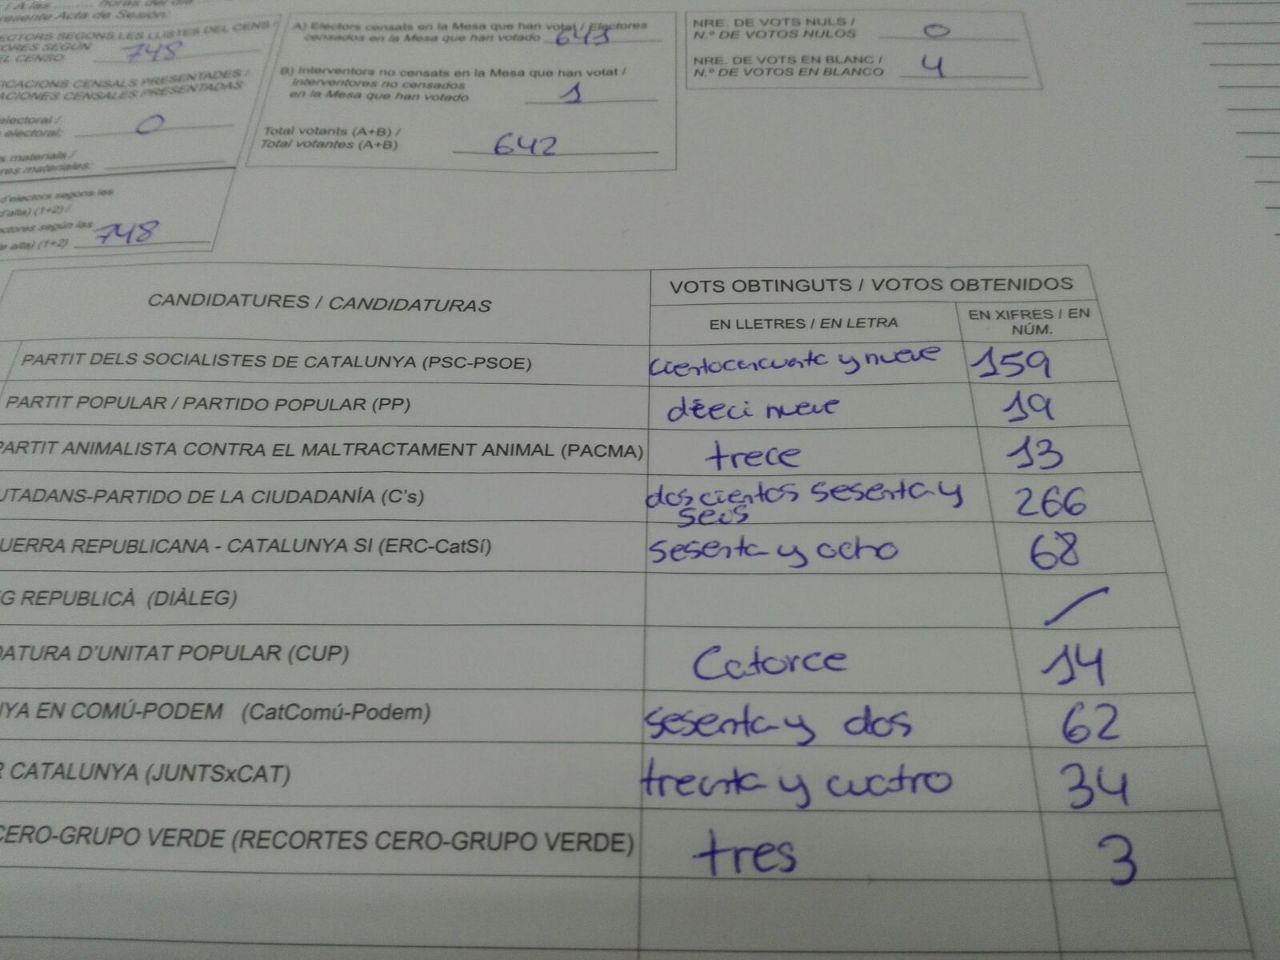 / A las .......... horas del día
resente Acta de Sesión:
ECTORS SEGONS LES LLISTES DEL CENS /
ORES SEGÚN
EL CENSO 748
FICACIONS CENSALS PRESENTADES /
ACIONES CENSALES PRESENTADAS
electoral /
electoral: 0
s materials /
res materiales:
d'electors segons les
d'alta) (1+2) /
ectores según las
e alta) (1+2) 748
A) Electors censats en la Mesa que han votat / Electores
censados en la Mesa que han votado
B) Interventors no censats en la Mesa que han votat /
Interventores no censados
en la Mesa que han votado 1
Total votants (A+B) /
Total votantes (A+B) 642
NRE. DE VOTS NULS /
N.º DE VOTOS NULOS 0
NRE. DE VOTS EN BLANC /
N.º DE VOTOS EN BLANCO 4
CANDIDATURES / CANDIDATURAS
VOTS OBTINGUTS / VOTOS OBTENIDOS
EN LLETRES / EN LETRA
EN XIFRES / EN
NÚM.
PARTIT DELS SOCIALISTES DE CATALUNYA (PSC-PSOE) cientocincuenta y nueve 159
PARTIT POPULAR / PARTIDO POPULAR (PP) dieci nueve 19
PARTIT ANIMALISTA CONTRA EL MALTRACTAMENT ANIMAL (PACMA) trece 13
UTADANS-PARTIDO DE LA CIUDADANÍA (C's) doscientos sesenta y
seis 266
UERRA REPUBLICANA - CATALUNYA SI (ERC-CatSí) sesenta y ocho 68
G REPUBLICÀ (DIÀLEG) /
DATURA D'UNITAT POPULAR (CUP) Catorce 14
NYA EN COMÚ-PODEM (CatComú-Podem) sesenta y dos 62
R CATALUNYA (JUNTSxCAT) treinta y cuatro 34
CERO-GRUPO VERDE (RECORTES CERO-GRUPO VERDE) tres 3